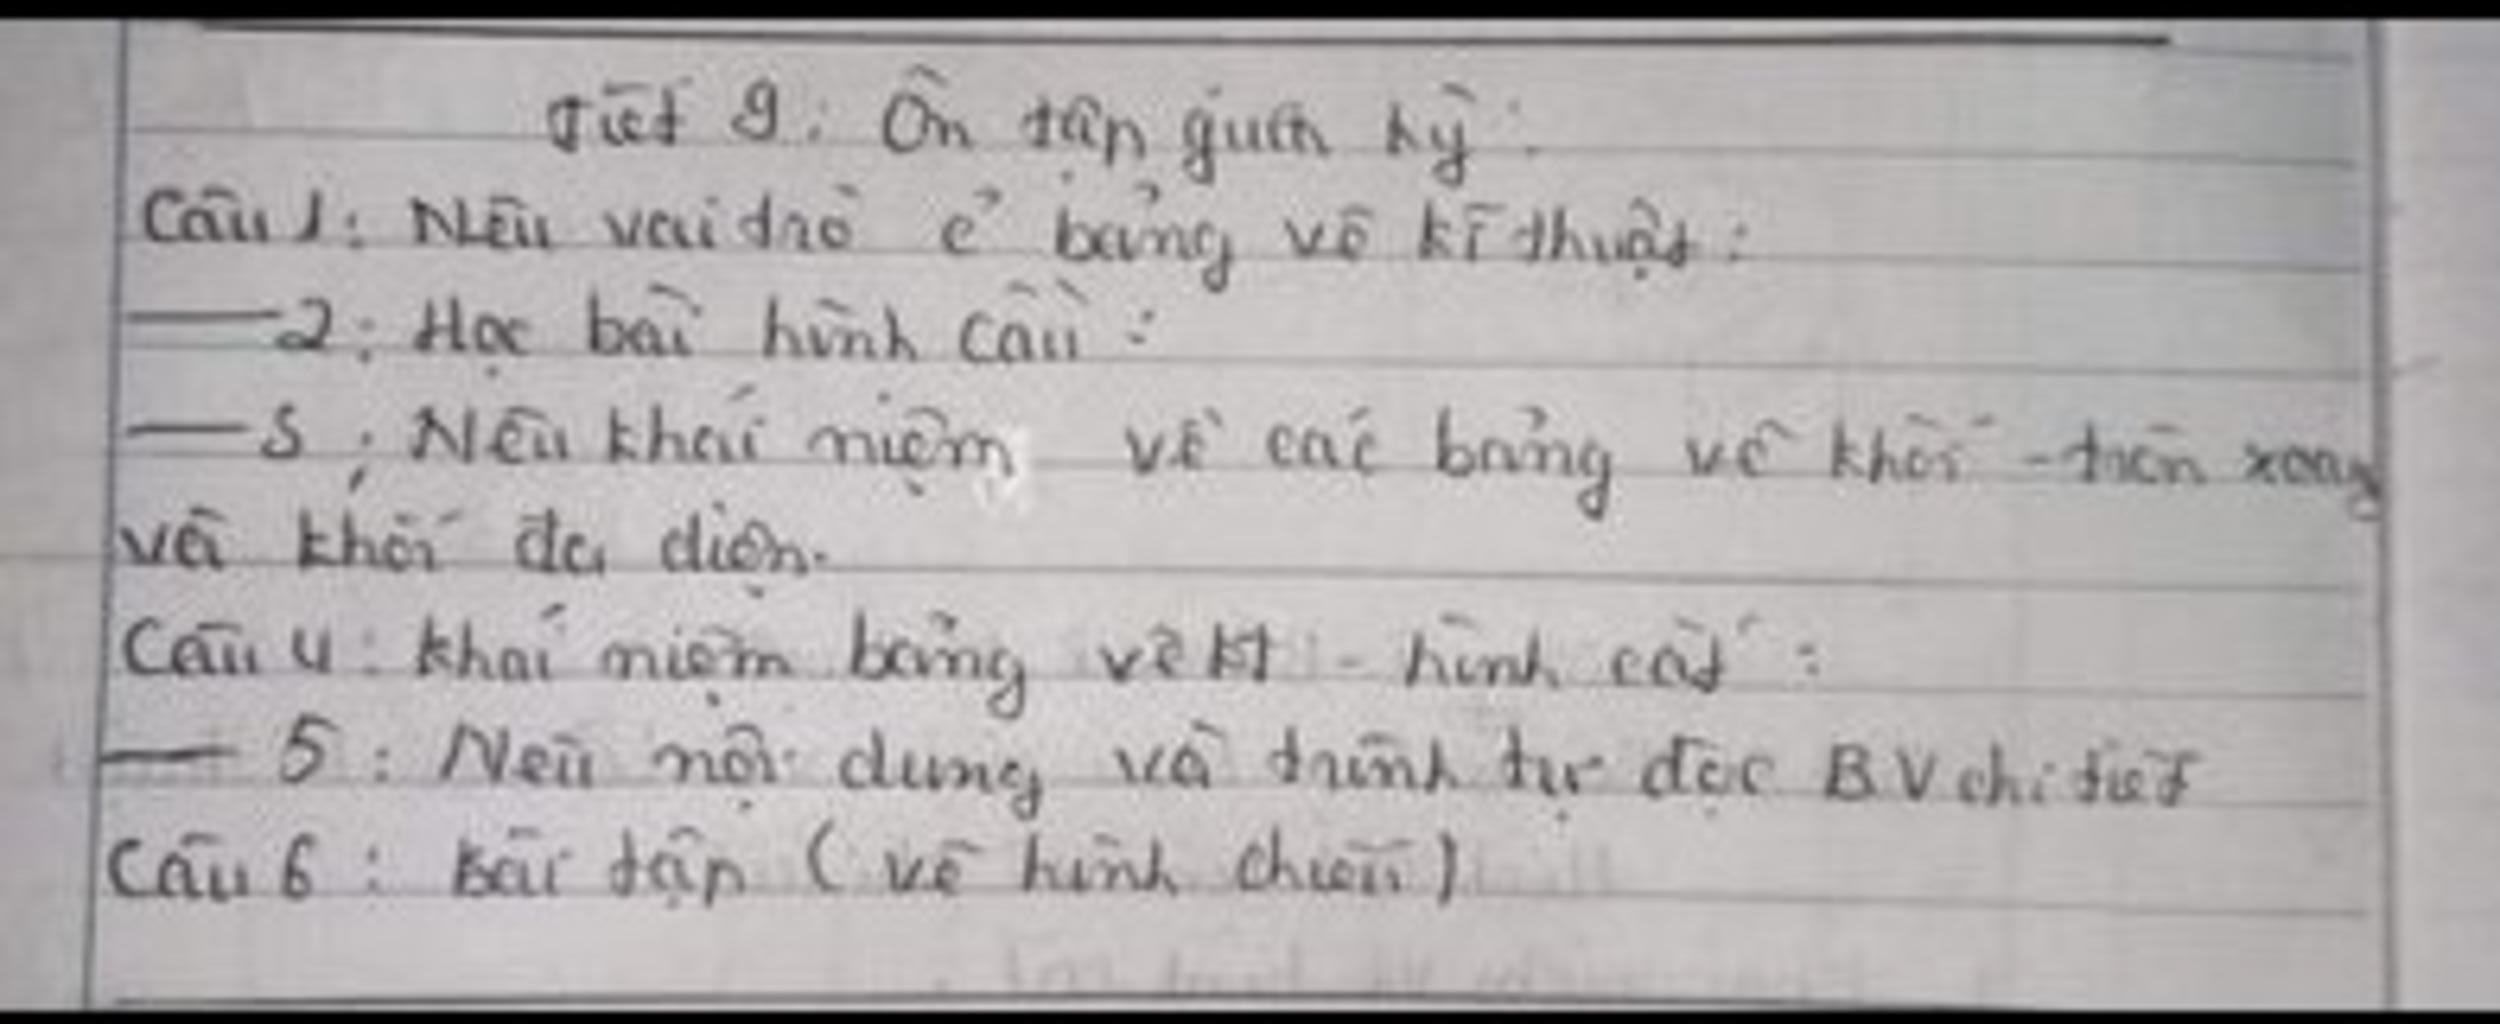 Tiết 9: Ôn tập giữa kỳ:
Câu 1: Nêu vai trò c̉ bảng vẽ kĩ thuật:
— 2: Học bài hình cầu:
— 3: Nêu khái niệm về các bảng vẽ khối - tròn xoay
và khối đa diện.
Câu 4: khái niệm bảng vẽ kt - hình cắt:
— 5: Nêu nội dung và trình tự đọc BV chi tiết
Câu 6: Bài tập (vẽ hình chiếu)